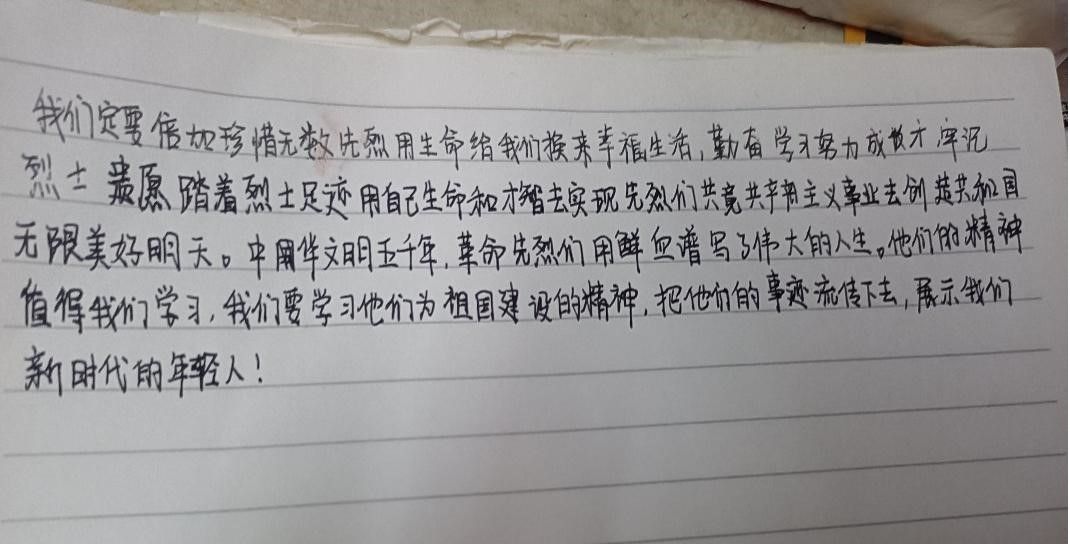 我们定要倍加珍惜无数先烈用生命给我们换来幸福生活,勤奋学习努力成
烈士 遗愿 踏着烈士足迹用自己生命和才智去实现先烈们共竟共产主义事业去创造共和国
无限美好明天。中国华文明五千年,革命先烈们用鲜血谱写了伟大的人生。他们的精神
值得我们学习,我们要学习他们为祖国建设的精神,把他们的事迹流传下去,展示我们
新时代的年轻人!